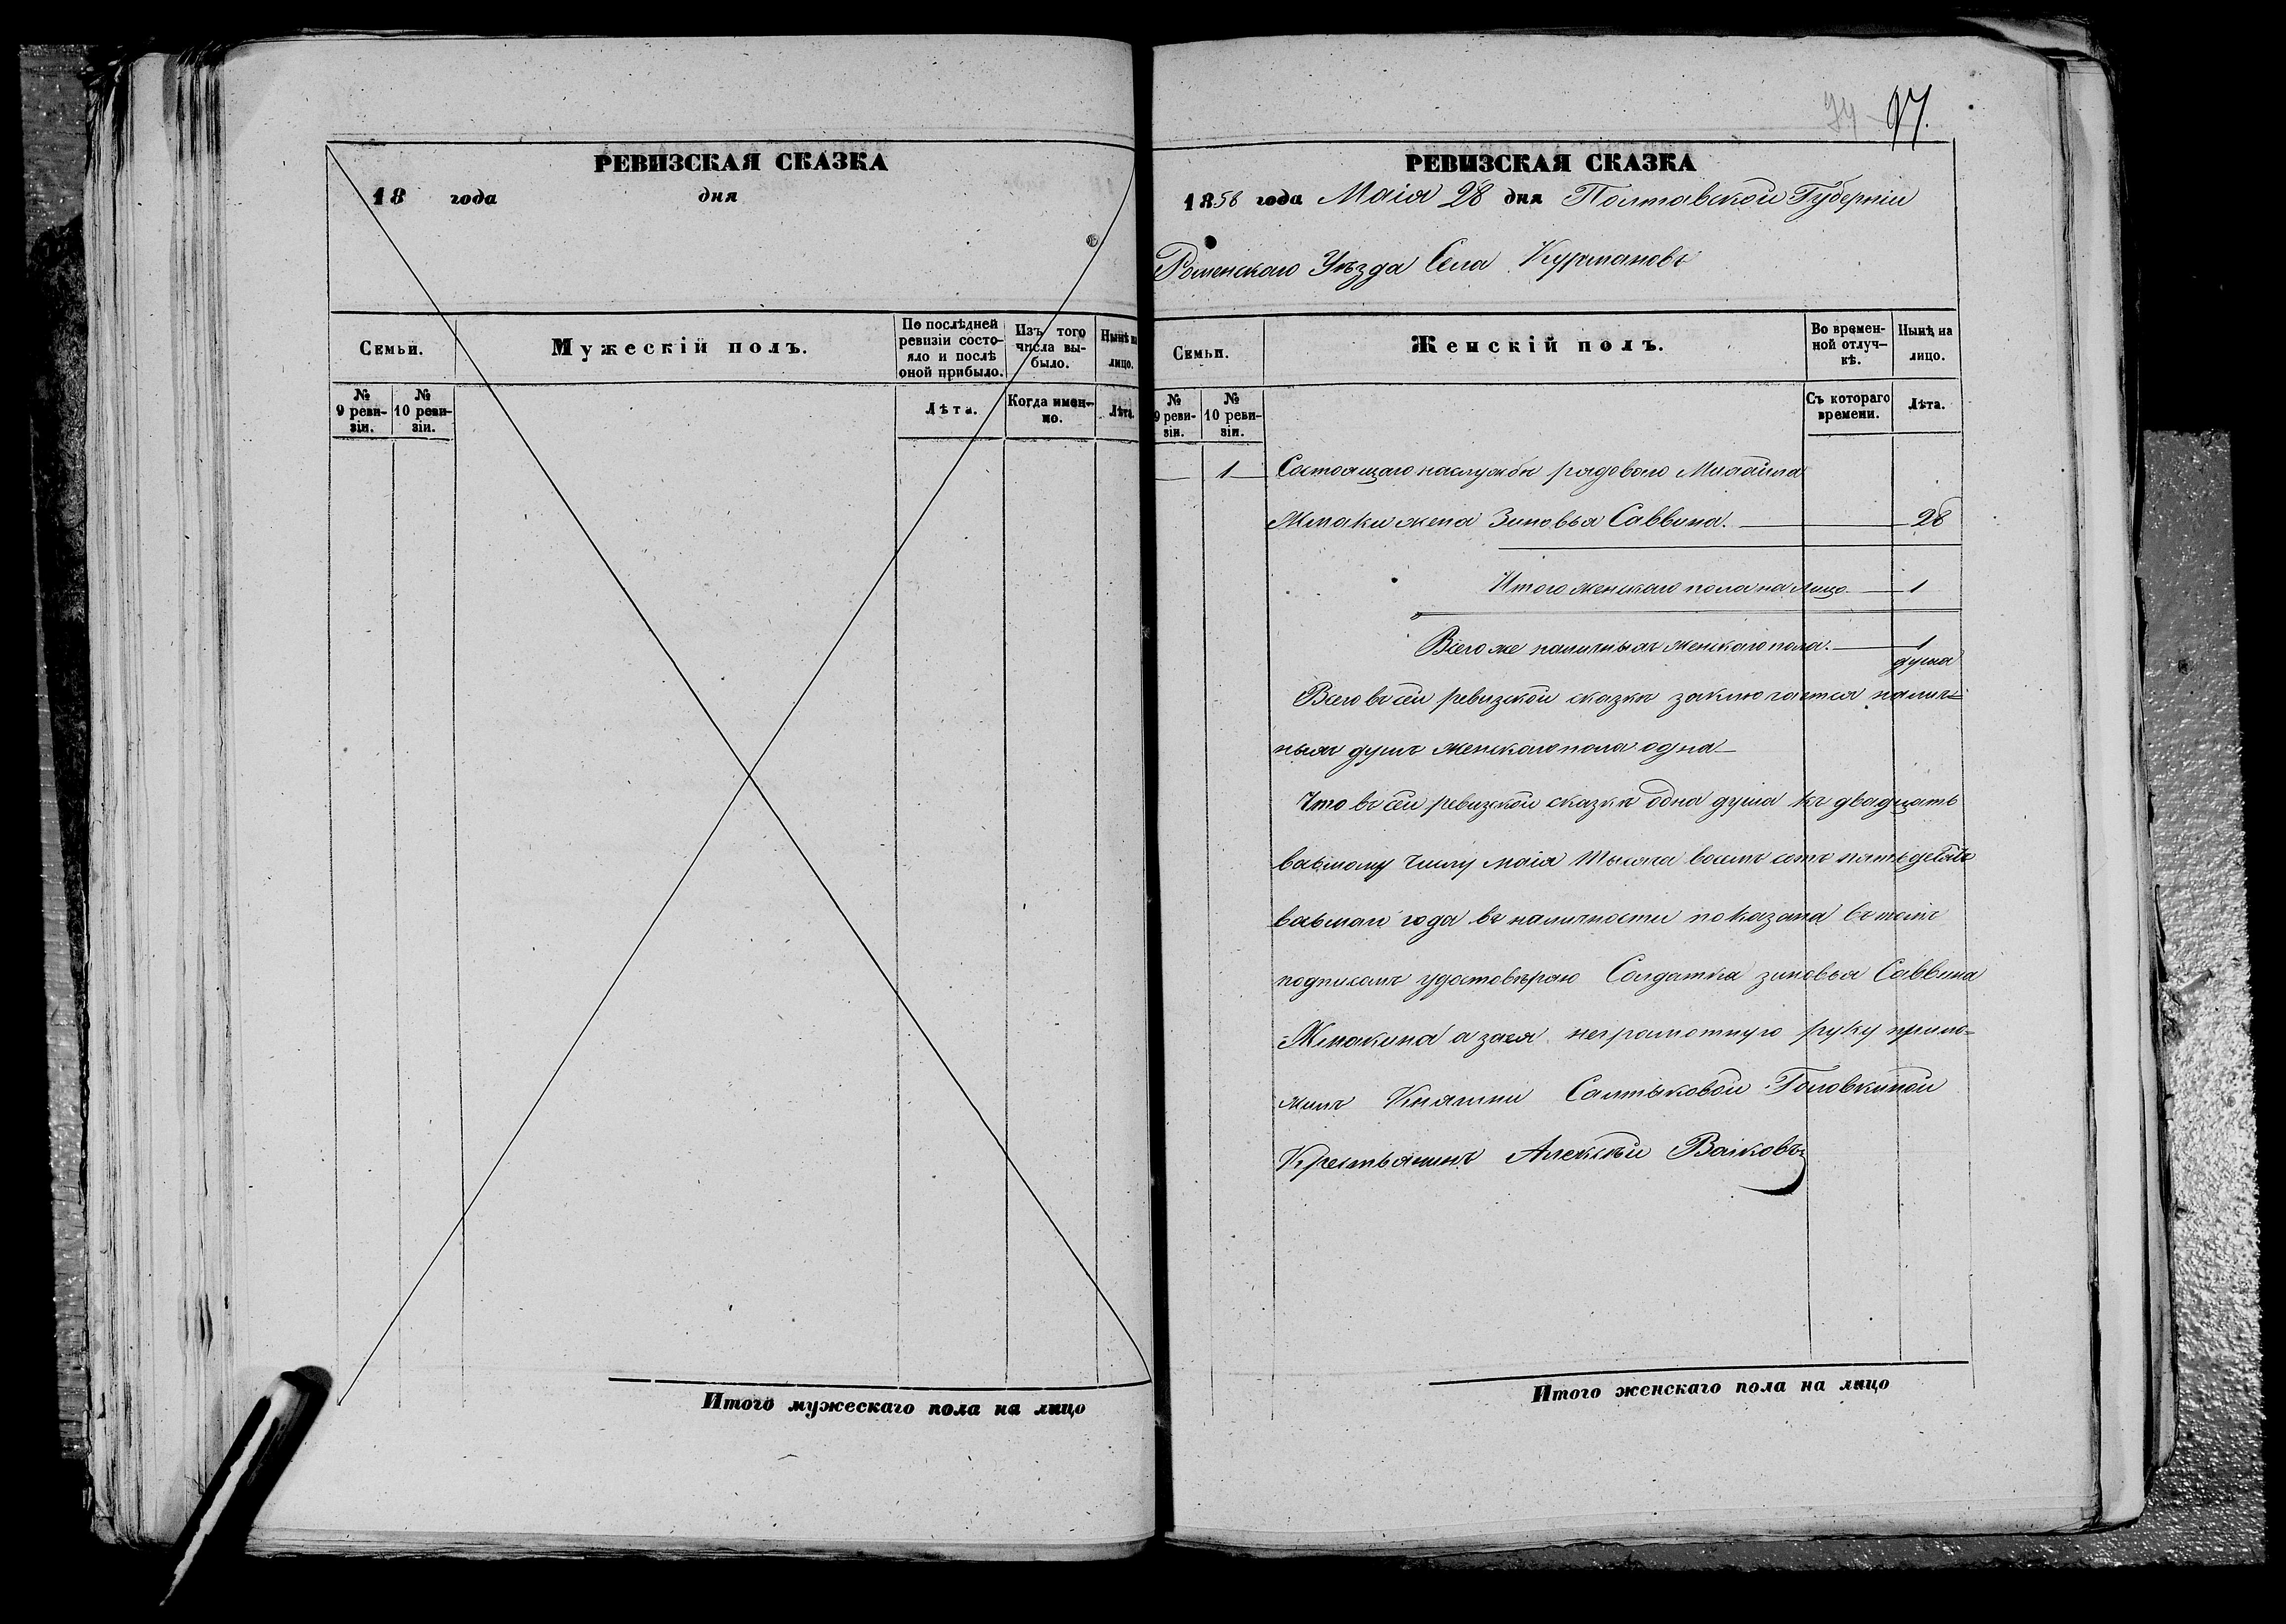 РЕВИЗСКАЯ СКАЗКА
18 года дня
Семьи.
Мужескій полъ.
По послѣдней ревизіи состояло и послѣ оной прибыло.
Изъ того числа выбыло.
Нынѣ на лицо.
№ 9 ревизіи.
№ 10 ревизіи.
Лѣта.
Когда именно.
Лѣта.
Итого мужескаго пола на лицо
74 97.
РЕВИЗСКАЯ СКАЗКА
1858 года Маія 28 дня Полтавской Губерніи
Роменскаго Уѣзда Села Курмановъ
Семьи.
Женскій полъ.
Во временной отлучкѣ.
Нынѣ на лицо.
№ 9 ревизіи.
№ 10 ревизіи.
Съ котораго времени.
Лѣта.
1 Состоящаго наслужбѣ рядоваго Михайла
жена Зиновья Саввина. 28
Итого женскаго пола на лицо 1
Всего же наличныхъ женскаго пола. 1
душа
Всего въ сей ревизской сказкѣ заключается налич=
ныхъ душъ женскаго пола одна
Что въ сей ревизской сказкѣ одна душа къ двадцать
восьмому числу маія тысяча восемь сотъ пятьдесятъ
года въ наличности показана въ томъ
удостовѣряю Солдатка зиновья Саввина
а заея неграмотную руку прило=
жилъ Княгини Салтыковой Головкиной
Крестьянинъ Алексѣй Вайковъ
Итого женскаго пола на лицо